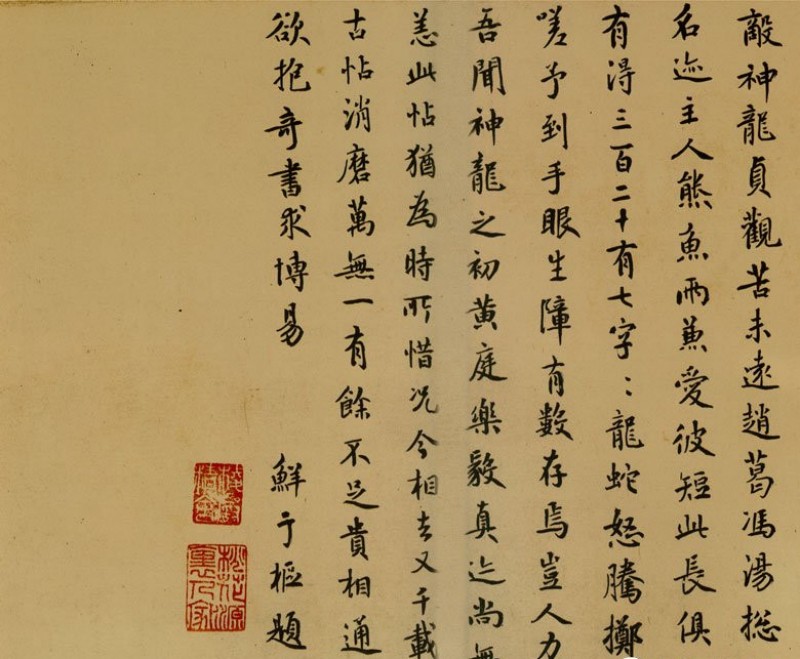 敵神龍貞觀苦未遠趙葛馮湯捴
名迹主人熊魚兩兼愛彼短此長俱
有得三百二十有七字〻龍蛇怒騰擲
嗟予到手眼生障有數存焉豈人力
吾聞神龍之初黃庭樂毅真迹尚無
恙此帖猶為時所惜况今相去又千載
古帖消磨萬無一有餘不足貴相通
欲抱奇書求博易 鮮于樞題
桃花源裏人家